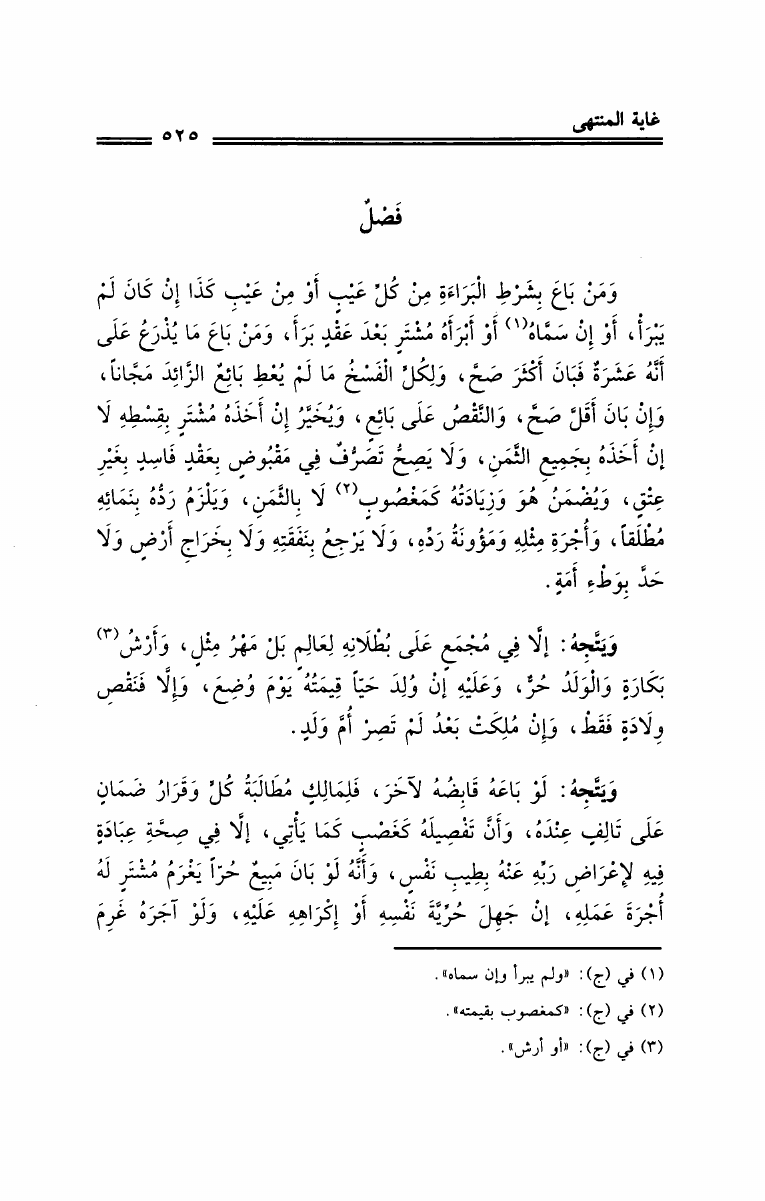 غاية المنتهى
٥٢٥
فَصْلٌ
وَمَنْ بَاعَ بِشَرْطِ الْبَرَاءَةِ مِنْ كُلِّ عَيْبٍ أَوْ مِنْ عَيْبِ كَذَا إِنْ كَانَ لَمْ
يَبْرَأْ، أَوْ إِنْ سَمَّاهُ(١) أَوْ أَبْرَأَهُ مُشْتَرٍ بَعْدَ عَقْدٍ بَرَأَ، وَمَنْ بَاعَ مَا يُذْرَعُ عَلَى
أَنَّهُ عَشَرَةٌ فَبَانَ أَكْثَرَ صَحَّ، وَلِكُلٍّ الْفَسْخُ مَا لَمْ يُعْطِ بَائِعٌ الزَّائِدَ مَجَّاناً،
وَإِنْ بَانَ أَقَلَّ صَحَّ، وَالنَّقْصُ عَلَى بَائِعٍ، وَيُخَيَّرُ إِنْ أَخَذَهُ مُشْتَرٍ بِقِسْطِهِ لَا
إِنْ أَخَذَهُ بِجَمِيعِ الثَّمَنِ، وَلَا يَصِحُّ تَصَرُّفٌ فِي مَقْبُوضٍ بِعَقْدٍ فَاسِدٍ بِغَيْرِ
عِتْقٍ، وَيُضْمَنُ هُوَ وَزِيَادَتُهُ كَمَغْصُوبٍ(٢) لَا بِالثَّمَنِ، وَيَلْزَمُ رَدُّهُ بِنَمَائِهِ
مُطْلَقاً، وَأُجْرَةِ مِثْلِهِ وَمَؤُونَةُ رَدِّهِ، وَلَا يَرْجِعُ بِنَفَقَتِهِ وَلَا بِخَرَاجِ أَرْضٍ وَلَا
حَدَّ بِوَطْءِ أَمَةٍ.
وَيَتَّجِهُ: إِلَّا فِي مُجْمَعٍ عَلَى بُطْلَانِهِ لِعَالِمٍ بَلْ مَهْرُ مِثْلٍ، وَأَرْشُ(٣)
بَكَارَةٍ وَالْوَلَدُ حُرٌّ، وَعَلَيْهِ إِنْ وُلِدَ حَيّاً قِيمَتُهُ يَوْمَ وُضِعَ، وَإِلَّا فَنَقْصِ
وِلَادَةٍ فَقَطْ، وَإِنْ مُلِكَتْ بَعْدُ لَمْ تَصِرْ أُمَّ وَلَدٍ.
وَيَتَّجِهُ: لَوْ بَاعَهُ قَابِضُهُ لآخَرَ، فَلِمَالِكٍ مُطَالَبَةُ كُلٍّ وَقَرَارُ ضَمَانٍ
عَلَى تَالِفٍ عِنْدَهُ، وَأَنَّ تَفْصِيلَهُ كَغَصْبٍ كَمَا يَأْتِي، إِلَّا فِي صِحَّةِ عِبَادَةٍ
فِيهِ لِإِعْرَاضِ رَبِّهِ عَنْهُ بِطِيبِ نَفْسٍ، وَأَنَّهُ لَوْ بَانَ مَبِيعٌ حُرّاً يَغْرَمُ مُشْتَرٍ لَهُ
أُجْرَةَ عَمَلِهِ، إِنْ جَهِلَ حُرِّيَّةَ نَفْسِهِ أَوْ إِكْرَاهِهِ عَلَيْهِ، وَلَوْ آجَرَهُ غَرِمَ
(١) في (ج): «ولم يبرأ وإن سماه».
(٢) في (ج): «كمغصوب بقيمته».
(٣) في (ج): «أو أرش».